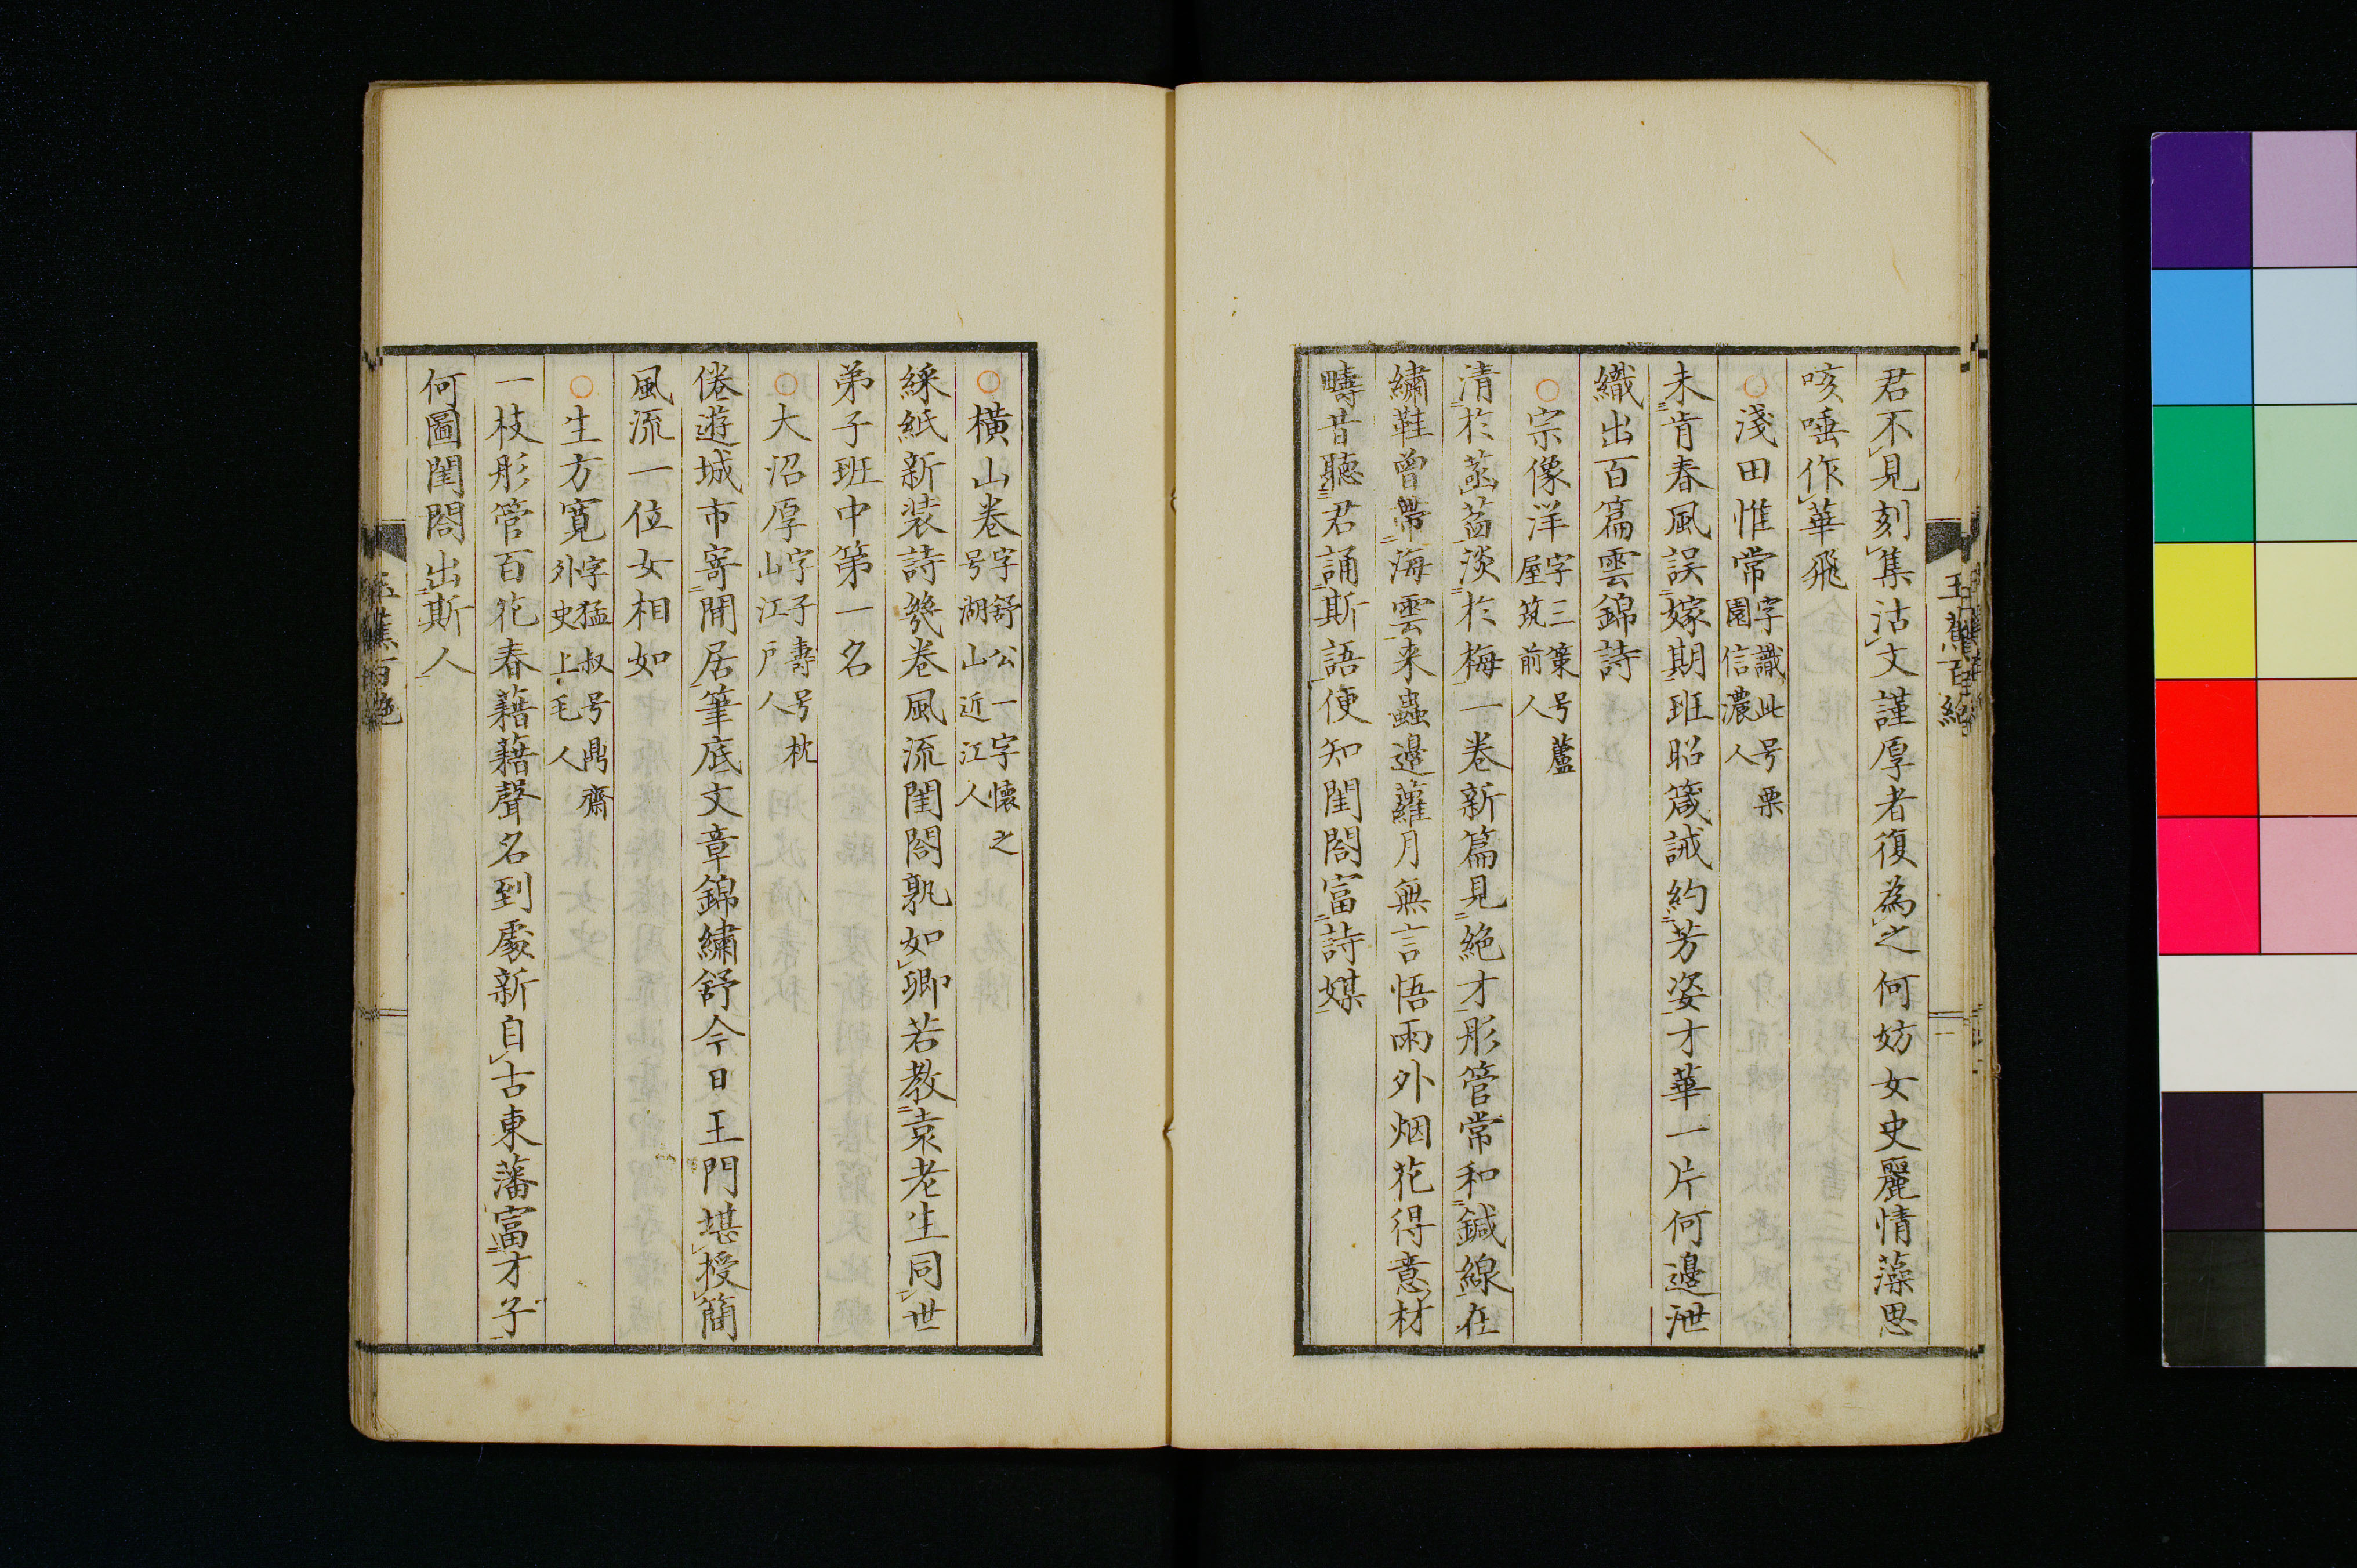 君不見刻集沽文謹厚者復為之何妨女史麗情藻思
咳唾作華飛
淺田惟常
字識此号栗
園信濃人
未肯春風誤嫁期班昭箴誡約芳姿才華一片何邊泄
織出百篇雲錦詩
宗像洋
字三策号蘆
屋筑前人
清於菡萏淡於梅一卷新篇見絶才彤管常和鍼線在
繡鞋曾帶海雲来蟲邊蘿月無言悟雨外烟花得意材
疇昔聽君誦斯語便知閨閤富詩媒
玉蕉百絶
橫山卷
字舒公一字懷之
号湖山近江人
綵紙新装詩幾卷風流閨閤孰如卿若教袁老生同世
弟子班中第一名
大沼厚
字子壽号枕
山江戸人
倦遊城市寄閒居筆底文章錦繡舒今日王門堪授簡
風流一位女相如
生方寬
字猛叔号鼎齋
外史上毛人
一枝彤管百花春藉藉聲名到處新自古東藩富才子
何圖閨閤出斯人
玉蕉百絶